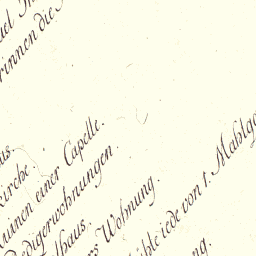 rinnen die
us.
Kirche.
Ruinen einer Capelle.
Predigerwohnungen.
lhaus.
rs Wohnung.
ühle jede von 1. Mahlga
ng.